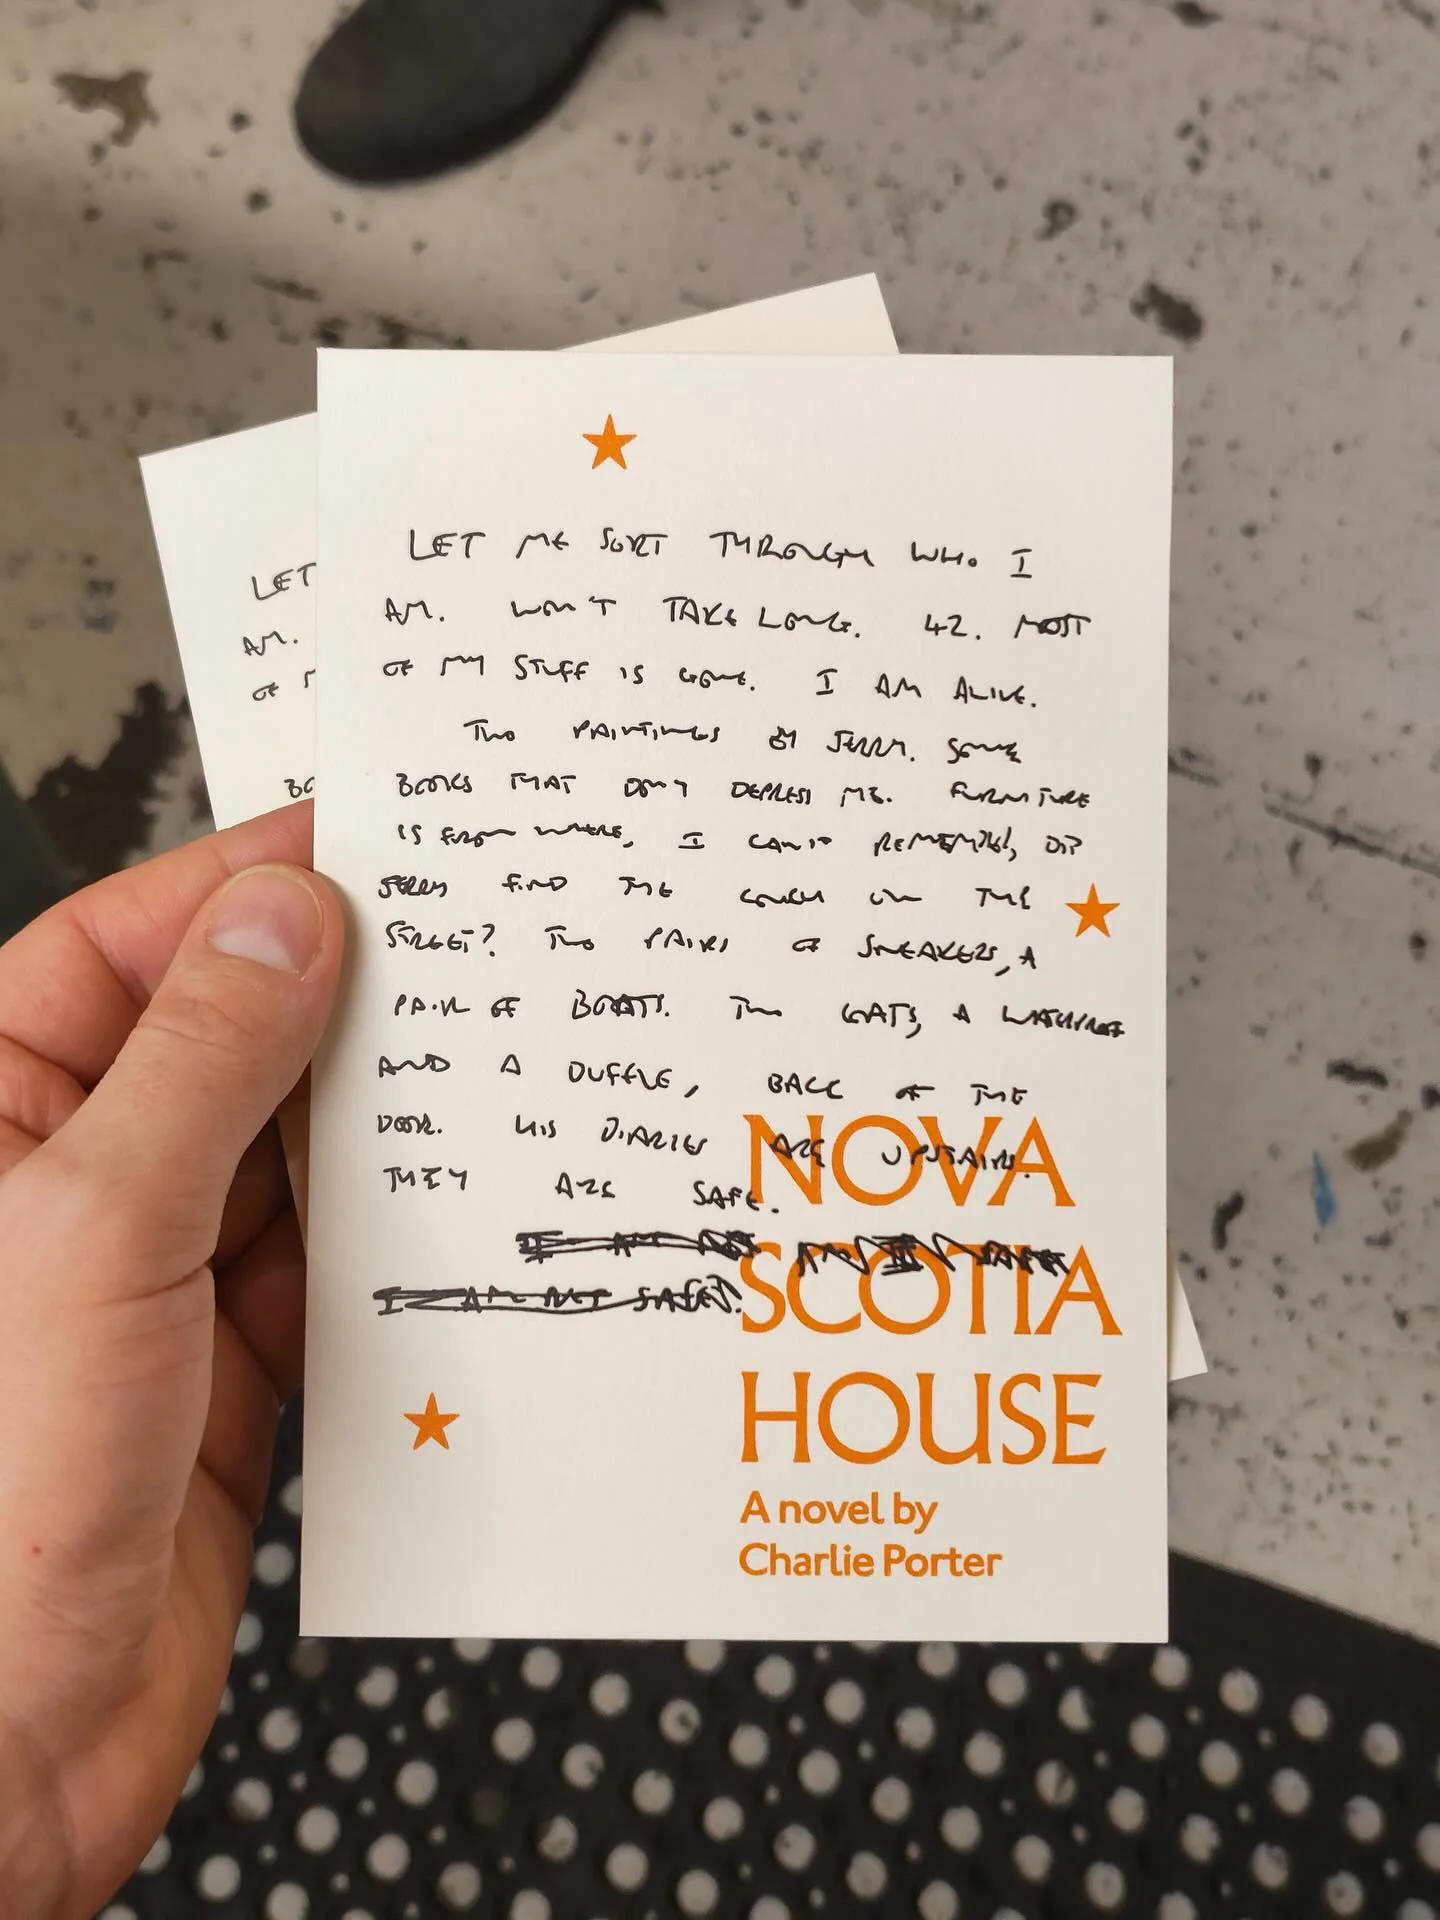 LET ME SORT THROUGH WHO I
AM. WON'T TAKE LONG. 42. MOST
OF MY STUFF IS GONE. I AM ALIVE.
TWO PAINTINGS BY JERRY. SOME
BOOKS THAT DON'T DEPRESS ME. FURNITURE
IS FROM WHERE, I CAN'T REMEMBER, DID
JERRY FIND THE COUCH ON THE
STREET? TWO PAIRS OF SNEAKERS, A
PAIR OF BOOTS. TWO COATS, A
AND A DUFFLE, BACK OF THE
DOOR. HIS DIARIES ARE UPSTAIRS.
THEY ARE SAFE.
I AM NOT SAFE?
NOVA
SCOTIA
HOUSE
A novel by
Charlie Porter
LET
AM.
OF
BO